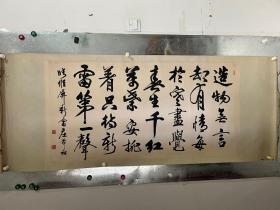 造物無言
却有情每
於寒盡覺
春生千紅
萬紫安排
着只待新
雷第一聲
維屏新雷